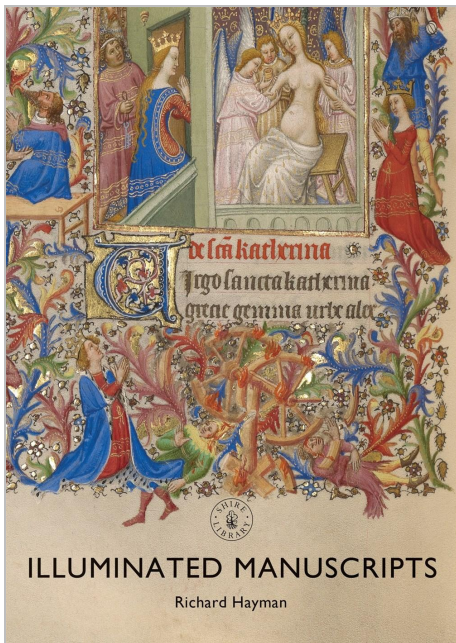 de scā katherina
VIrgo sancta katherina
grecie gemma urbe alex
SHIRE LIBRARY
ILLUMINATED MANUSCRIPTS
Richard Hayman